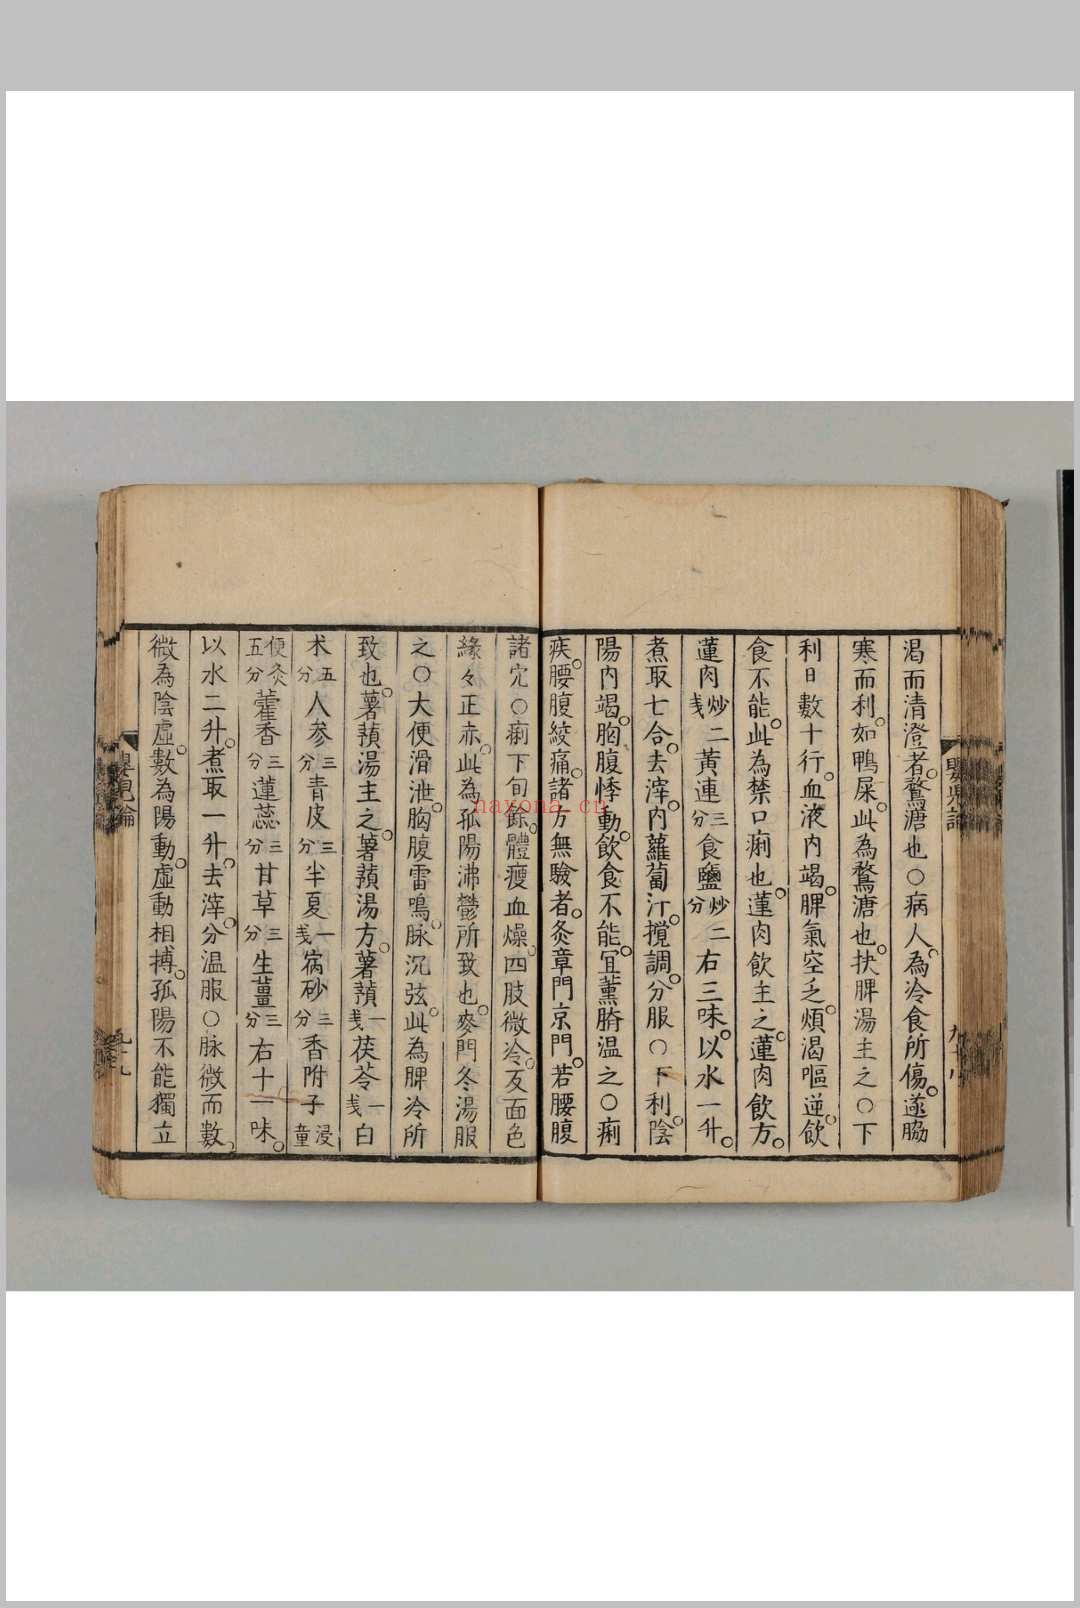 渴而清澄者鶩溏也○病人為冷食所傷遂脇
寒而利如鴨屎此為鶩溏也抉脾湯主之○下
利日數十行血液内竭脾氣空乏煩渴嘔逆飲
食不能此為禁口痢也蓮肉飲主之蓮肉飲方
蓮肉炒二戔黃連三分食鹽炒二分右三味以水一升
煮取七合去滓内蘿蔔汁攪調分服○下利陰
陽内竭胸腹悸動飲食不能宜薰臍温之○痢
疾腰腹絞痛諸方無驗者灸章門京門若腰腹
諸穴○痢下旬餘體瘦血燥四肢微冷反面色
緣々正赤此為孤陽沸鬱所致也麥門冬湯服
之○大便滑泄胸腹雷鳴脉沉弦此為脾冷所
致也薯蕷湯主之薯蕷湯方薯蕷一戔茯苓一戔白
术五分人参三分青皮三分半夏一戔宿砂三分香附子浸童
便灸五分藿香三分蓮蕊三分甘草三分生薑三分右十一味
以水二升煮取一升去滓分温服○脉微而數
微為陰虛數為陽動虛動相摶孤陽不能獨立
嬰児論
hayona.cn